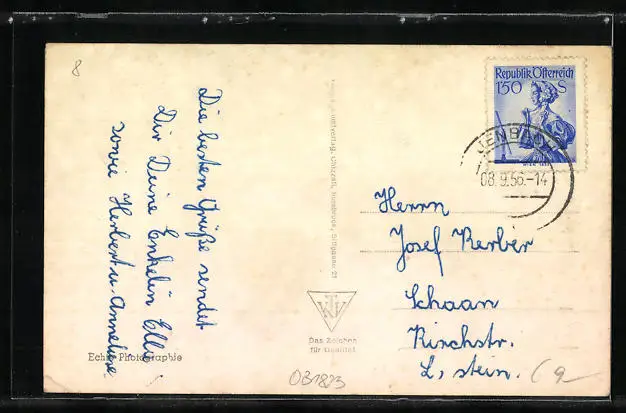 8
Die besten Grüße sendet
Dir Deine Enkelin Elli
sowie Herbert u. Anneliese.
Echte Photographie
Das Zeichen
für Qualität
Republik Österreich
1'50 S
JENBACH
08.9.56.-14
Herrn
Josef
Schaan
Kirchstr.
L, stein.
031823
(9